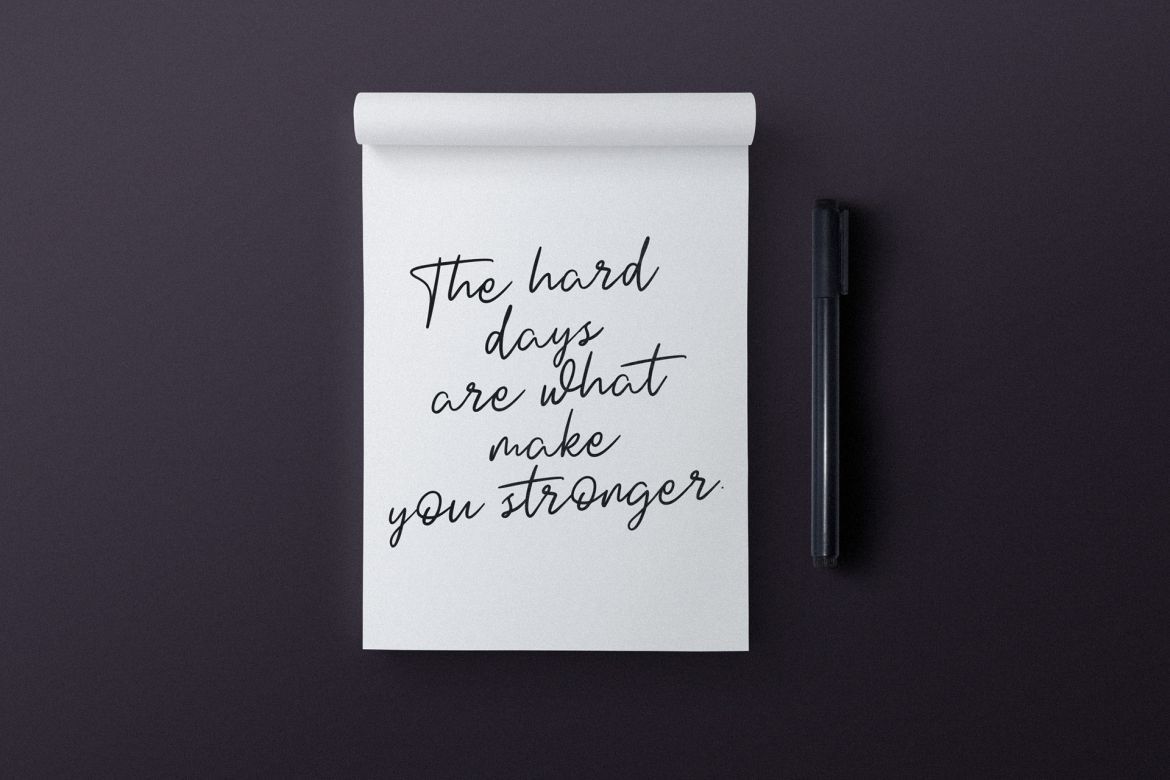 The hard
days
are what
make
you stronger.